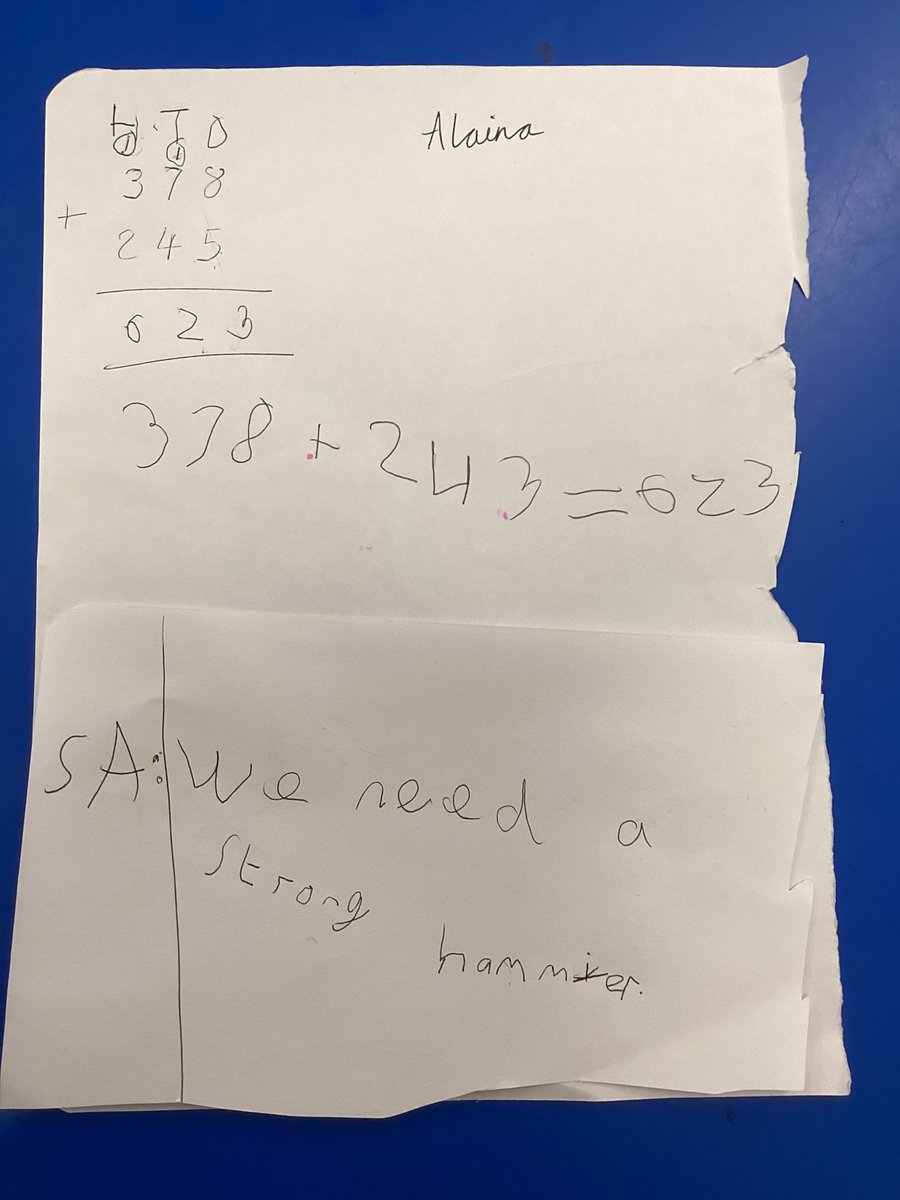 H T O
Alaina
1 1
3 7 8
+
2 4 5
6 2 3
378 + 243 = 623
SA: We need a
strong
hammer.